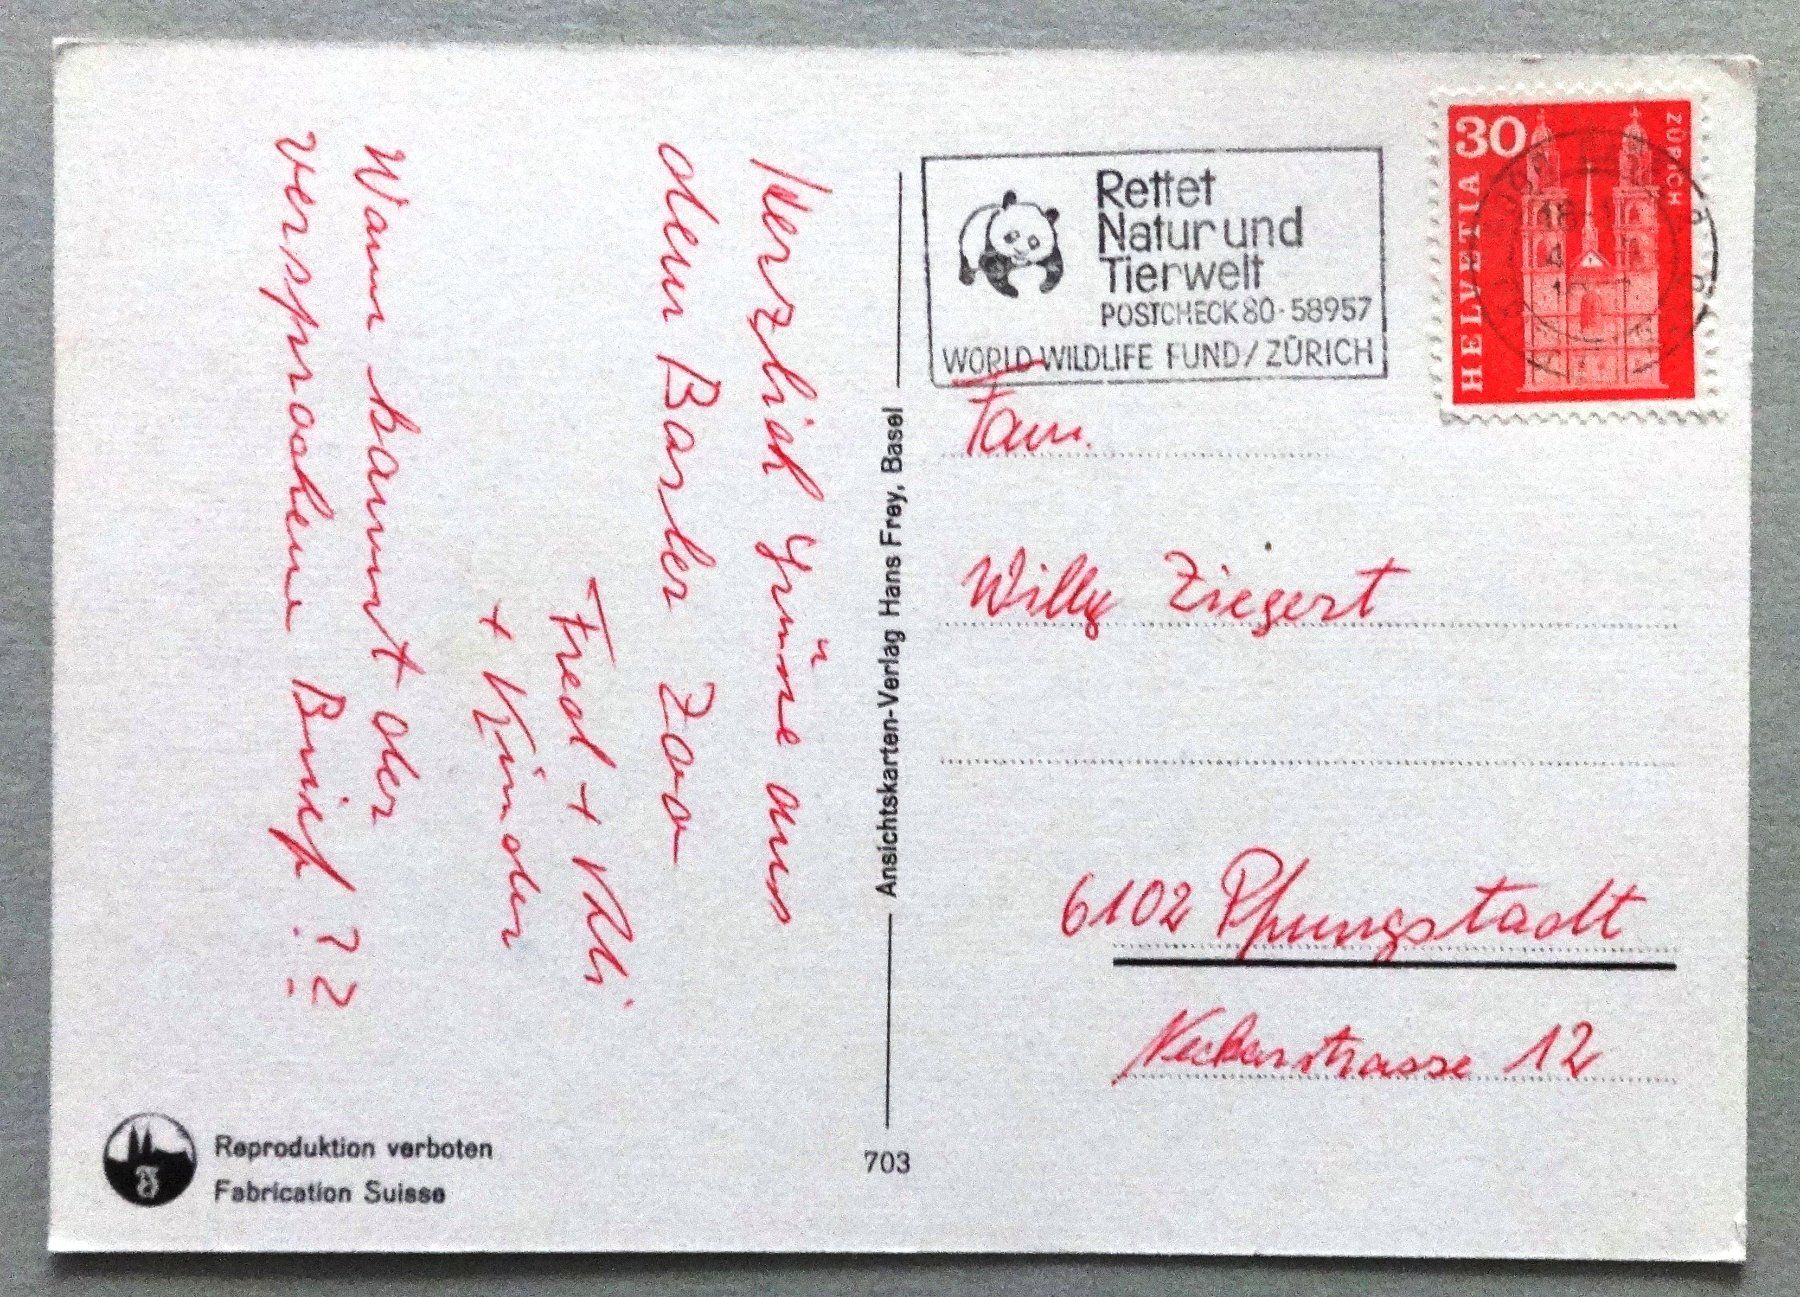 Herzlich Grüne aus
dem Basler Zoo
Fred + Uli
+ Kinder
Wann kommt der
versprochene Brief!??
Ansichtskarten-Verlag Hans Frey, Basel
Rettet
Natur und
Tierwelt
POSTCHECK 80-58957
WORLD WILDLIFE FUND/ZÜRICH
30
HELVETIA
ZÜRICH
Fam.
Willy Ziegert
6102 Pfungstadt
Neckarstrasse 12
Reproduktion verboten
Fabrication Suisse
703